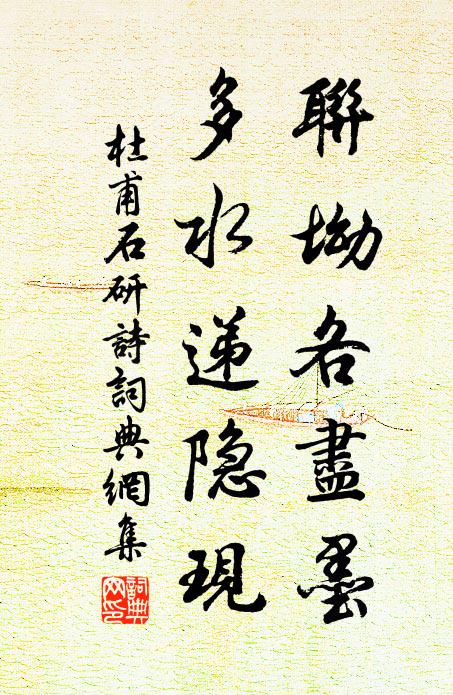 聯坳各盡墨
多水递隐現
杜甫石研詩詞典網集
詞典网印